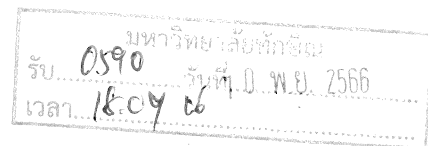 มหาวิทยาลัยทักษิณ
รับ 0590 วันที่ 10 พ.ย. 2566
เวลา 16:04